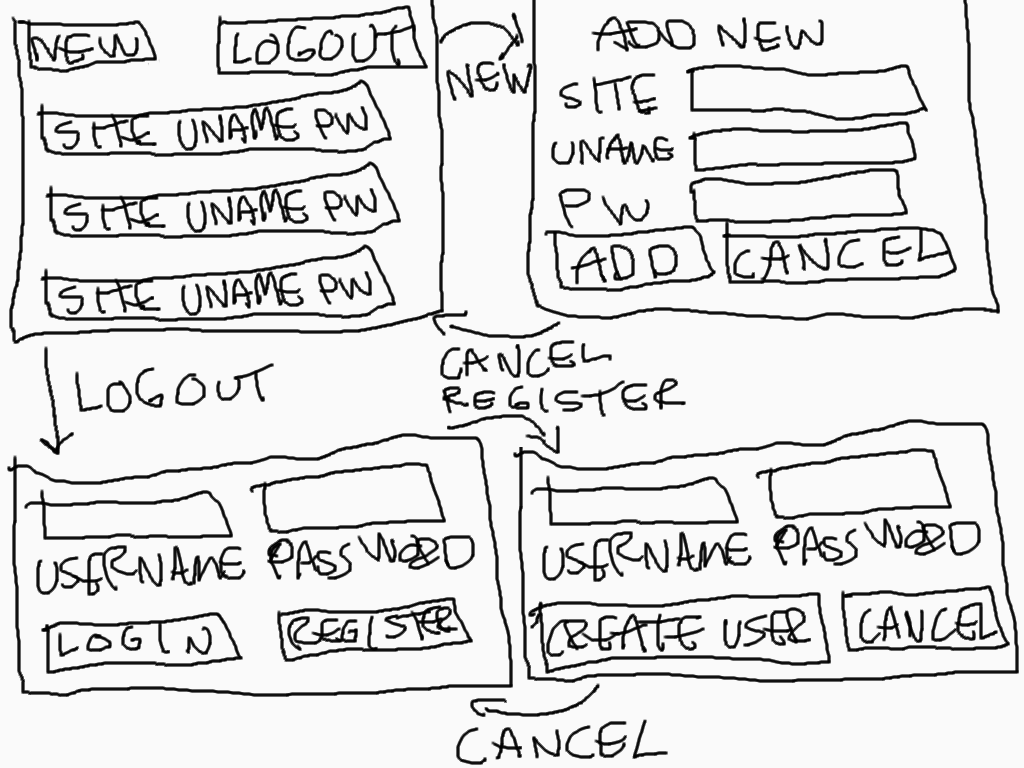 NEW LOGOUT
SITE UNAME PW
SITE UNAME PW
SITE UNAME PW
NEW
ADD NEW
SITE
UNAME
PW
ADD CANCEL
CANCEL
LOGOUT
REGISTER
USERNAME PASSWORD
LOGIN REGISTER
USERNAME PASSWORD
CREATE USER CANCEL
CANCEL